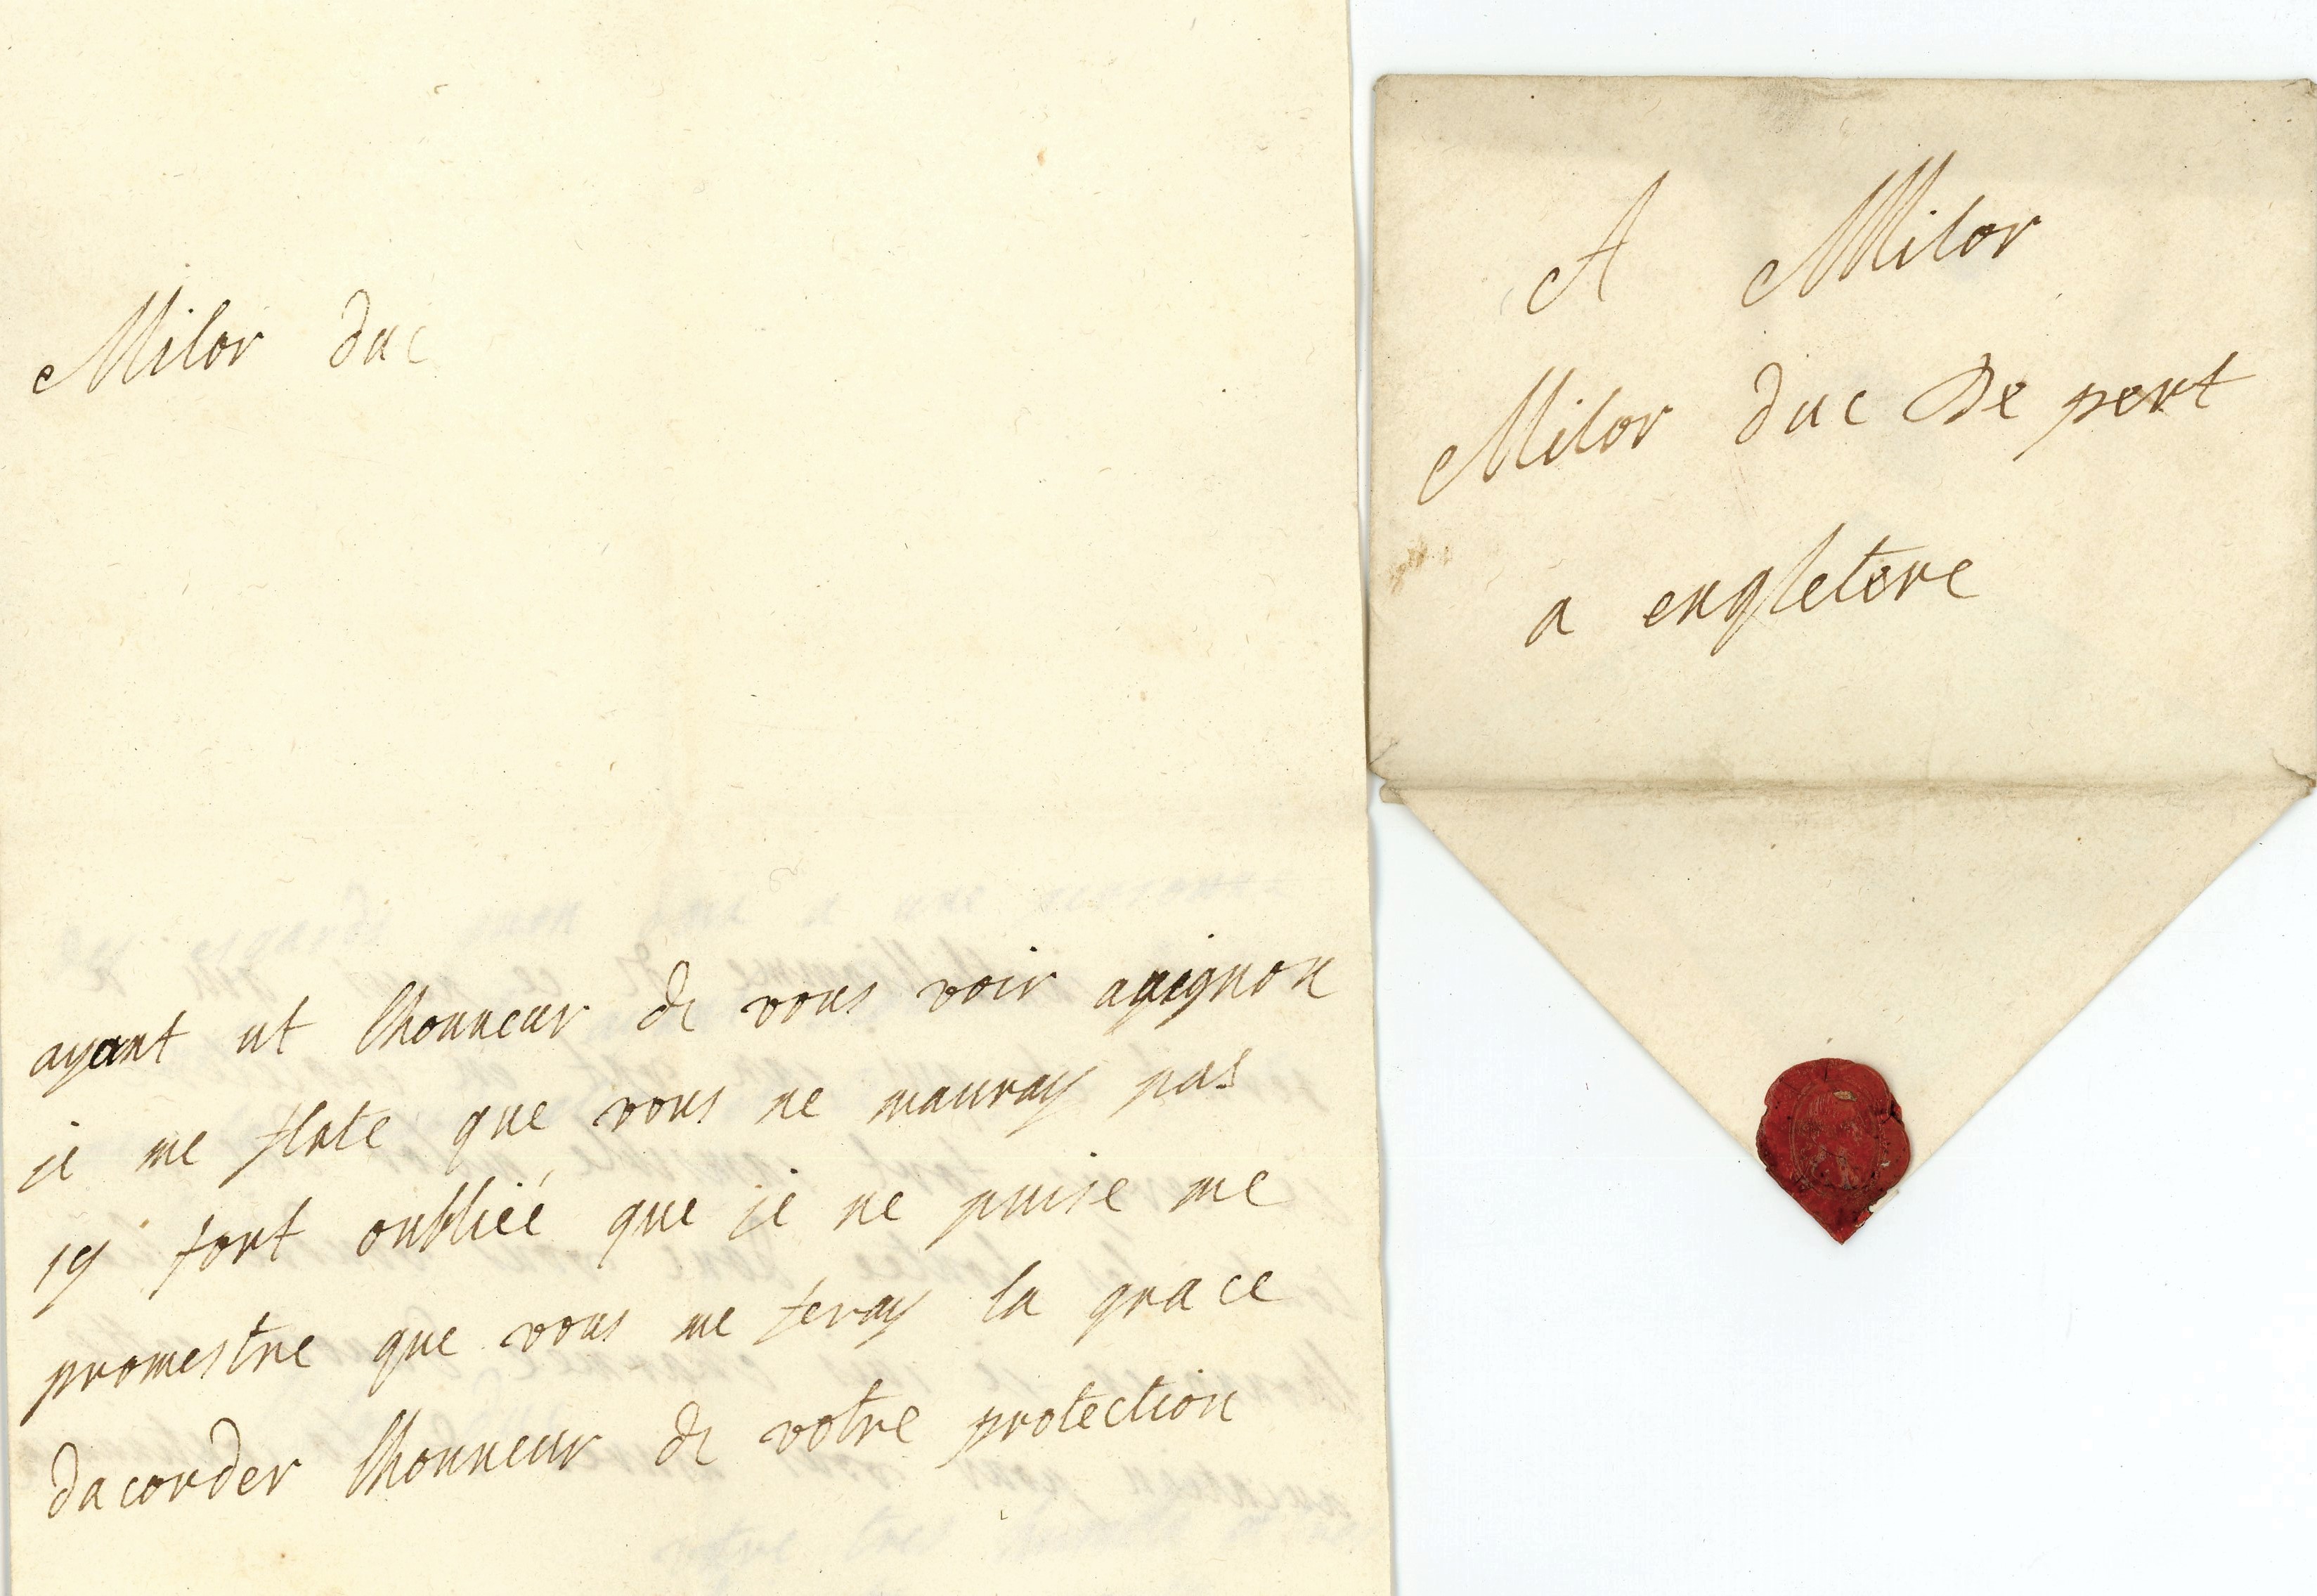 Milor duc
ayant ut lhonneur de vous voir avignon
je me flate que vous ne mauray pas
sy fort oubliéé que je ne puise me
promestre que vous me feray la grace
dacorder lhonneur de votre protection
A Milor
Milor duc De pert
a engletere